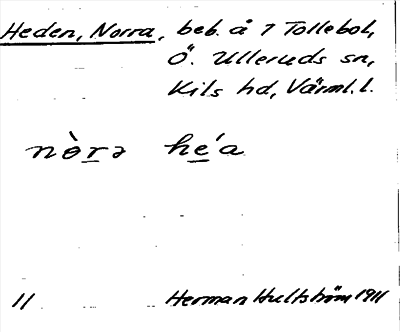 Heden, Norra, beb. å 7 Tollebol,
Ö. Ulleruds sn,
Kils hd, Värml. l.
nòrə héa
11 Herman Hultström 1911